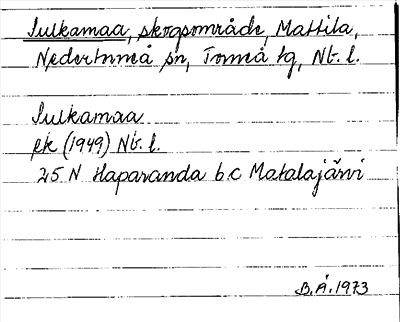 Sulkamaa, skogsområde, Mattila,
Nedertorneå sn, Torneå tg, Nb. l.
Sulkamaa
ek (1949) Nb. l.
25 N Haparanda b c Matalajärvi
B.Å. 1973